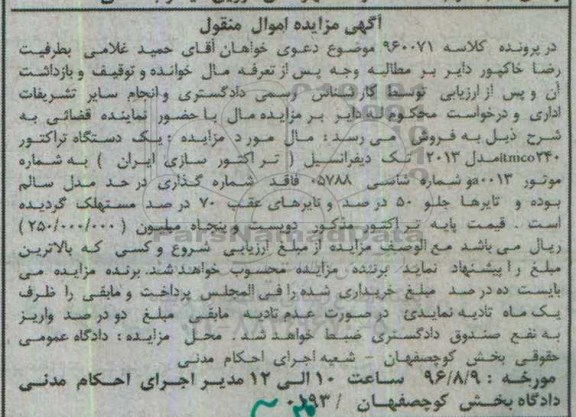 آگهی مزایده اموال منقول
در پرونده کلاسه ۹۶۰۰۷۱ موضوع دعوی خواهان آقای حمید غلامی بطرفیت
رضا خاکپور دایر بر مطالبه وجه پس از تعرفه مال خوانده و توقیف و بازداشت
آن و پس از ارزیابی توسط کارشناس رسمی دادگستری و انجام سایر تشریفات
اداری و درخواست محکوم له دایر بر مزایده مال با حضور نماینده قضائی به
شرح ذیل به فروش می رسد: مال مورد مزایده : یک دستگاه تراکتور
itmco۲۴۰ مدل ۲۰۱۳ تک دیفرانسیل ( تراکتور سازی ایران ) به شماره
موتور a۰۰۱۳ و شماره شاسی ۰۵۷۸۸ فاقد شماره گذاری در حد مدل سالم
بوده و تایرها جلو ۵۰ درصد و تایرهای عقب ۷۰ درصد مستهلک گردیده
است . قیمت پایه تراکتور مذکور دویست و پنجاه میلیون (۲۵۰/۰۰۰/۰۰۰)
ریال می باشد مع الوصف مزایده از مبلغ ارزیابی شروع و کسی که بالاترین
مبلغ را پیشنهاد نماید برنده مزایده محسوب خواهد شد. برنده مزایده می
بایست ده درصد مبلغ خریداری شده را فی المجلس پرداخت و مابقی را ظرف
یک ماه تادیه نماید در صورت عدم تادیه مابقی مبلغ دو درصد واریز
به نفع صندوق دادگستری ضبط خواهد شد . محل مزایده : دادگاه عمومی
حقوقی بخش کوچصفهان – شعبه اجرای احکام مدنی
مورخه : ۹۶/۸/۹ ساعت ۱۰ الی ۱۲ مدیر اجرای احکام مدنی
دادگاه بخش کوچصفهان / ۰۱۹۳